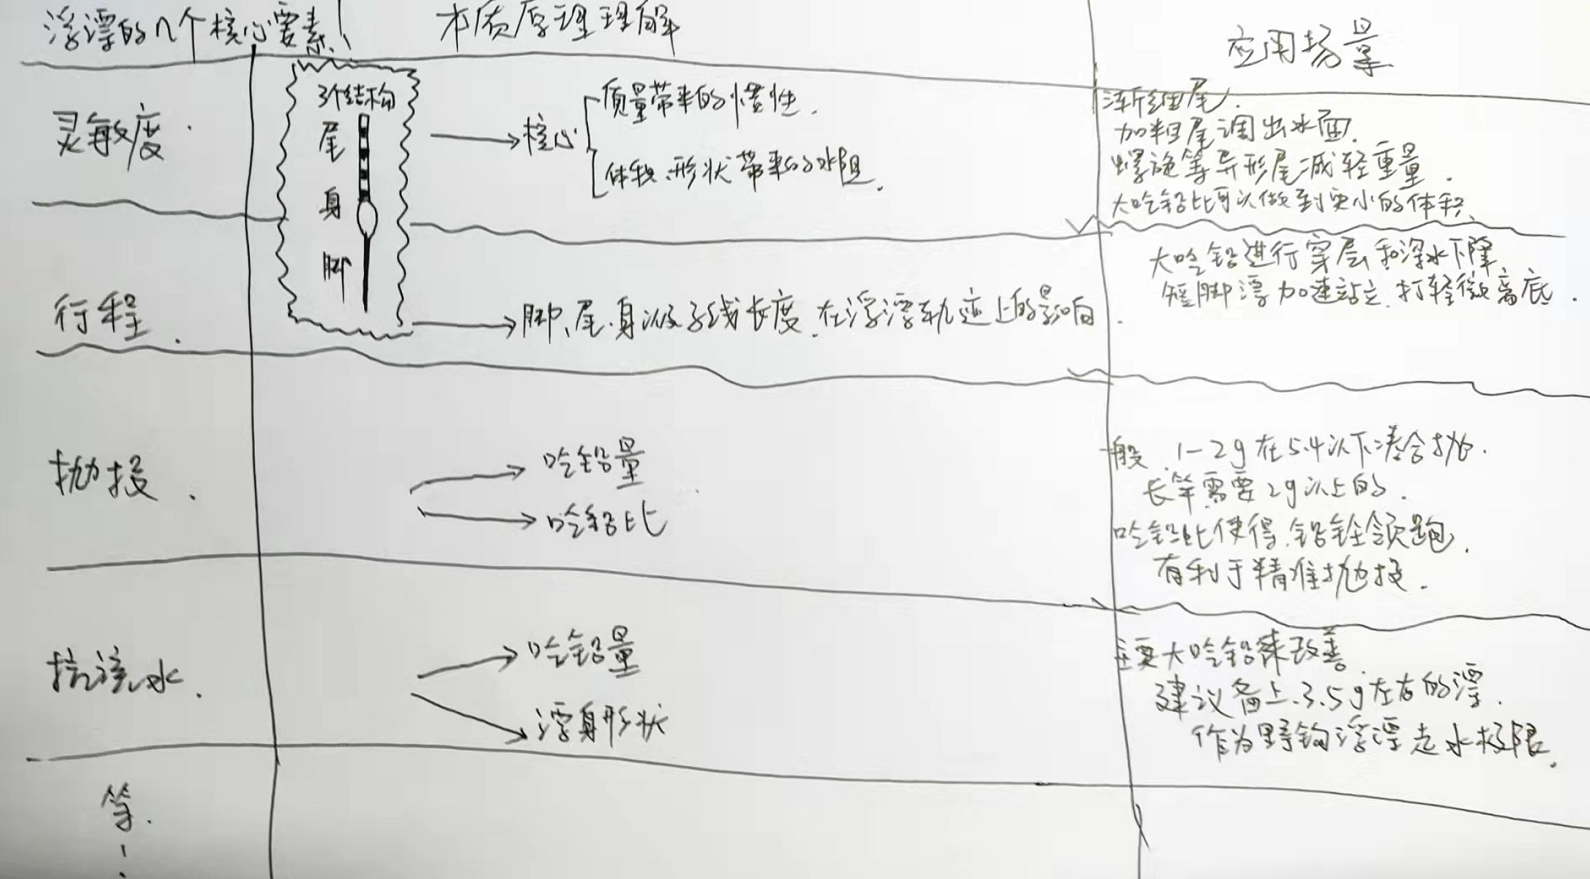 浮漂的几个核心要素！
本质原理理解
应用场景
灵敏度.
3个结构
尾
身
脚
核心
质量带来的惯性.
体积、形状带来的水阻.
渐细尾.
加粗尾调出水面.
螺旋等异形尾减轻重量.
大吃铅比可以做到更小的体积
行程.
脚、尾、身以及子线长度.在浮漂轨迹上的影响.
大吃铅进行穿层和深水下降
短脚漂加速站立.打轻微离底.
抛投.
吃铅量
吃铅比
一般.1-2g在5.4以下凑合抛.
长竿需要2g以上的.
吃铅比使得.铅坠领跑.
有利于精准抛投.
抗流水.
吃铅量
漂身形状
主要大吃铅来改善
建议备上.3.5g左右的漂.
作为野钓浮漂走水极限.
等.